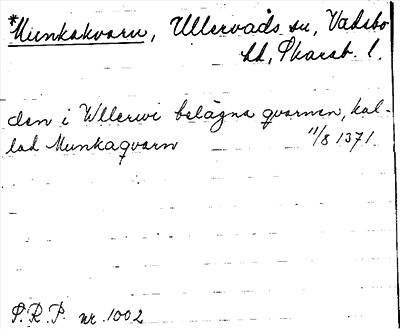 *Munkakvarn, Ullervads sn, Vadsbo
hd, Skarab. l.
den i Wllerwi belägna qvarnen, kal-
lad Munkaqvarn 11/8 1371.
S.R.P. nr. 1002